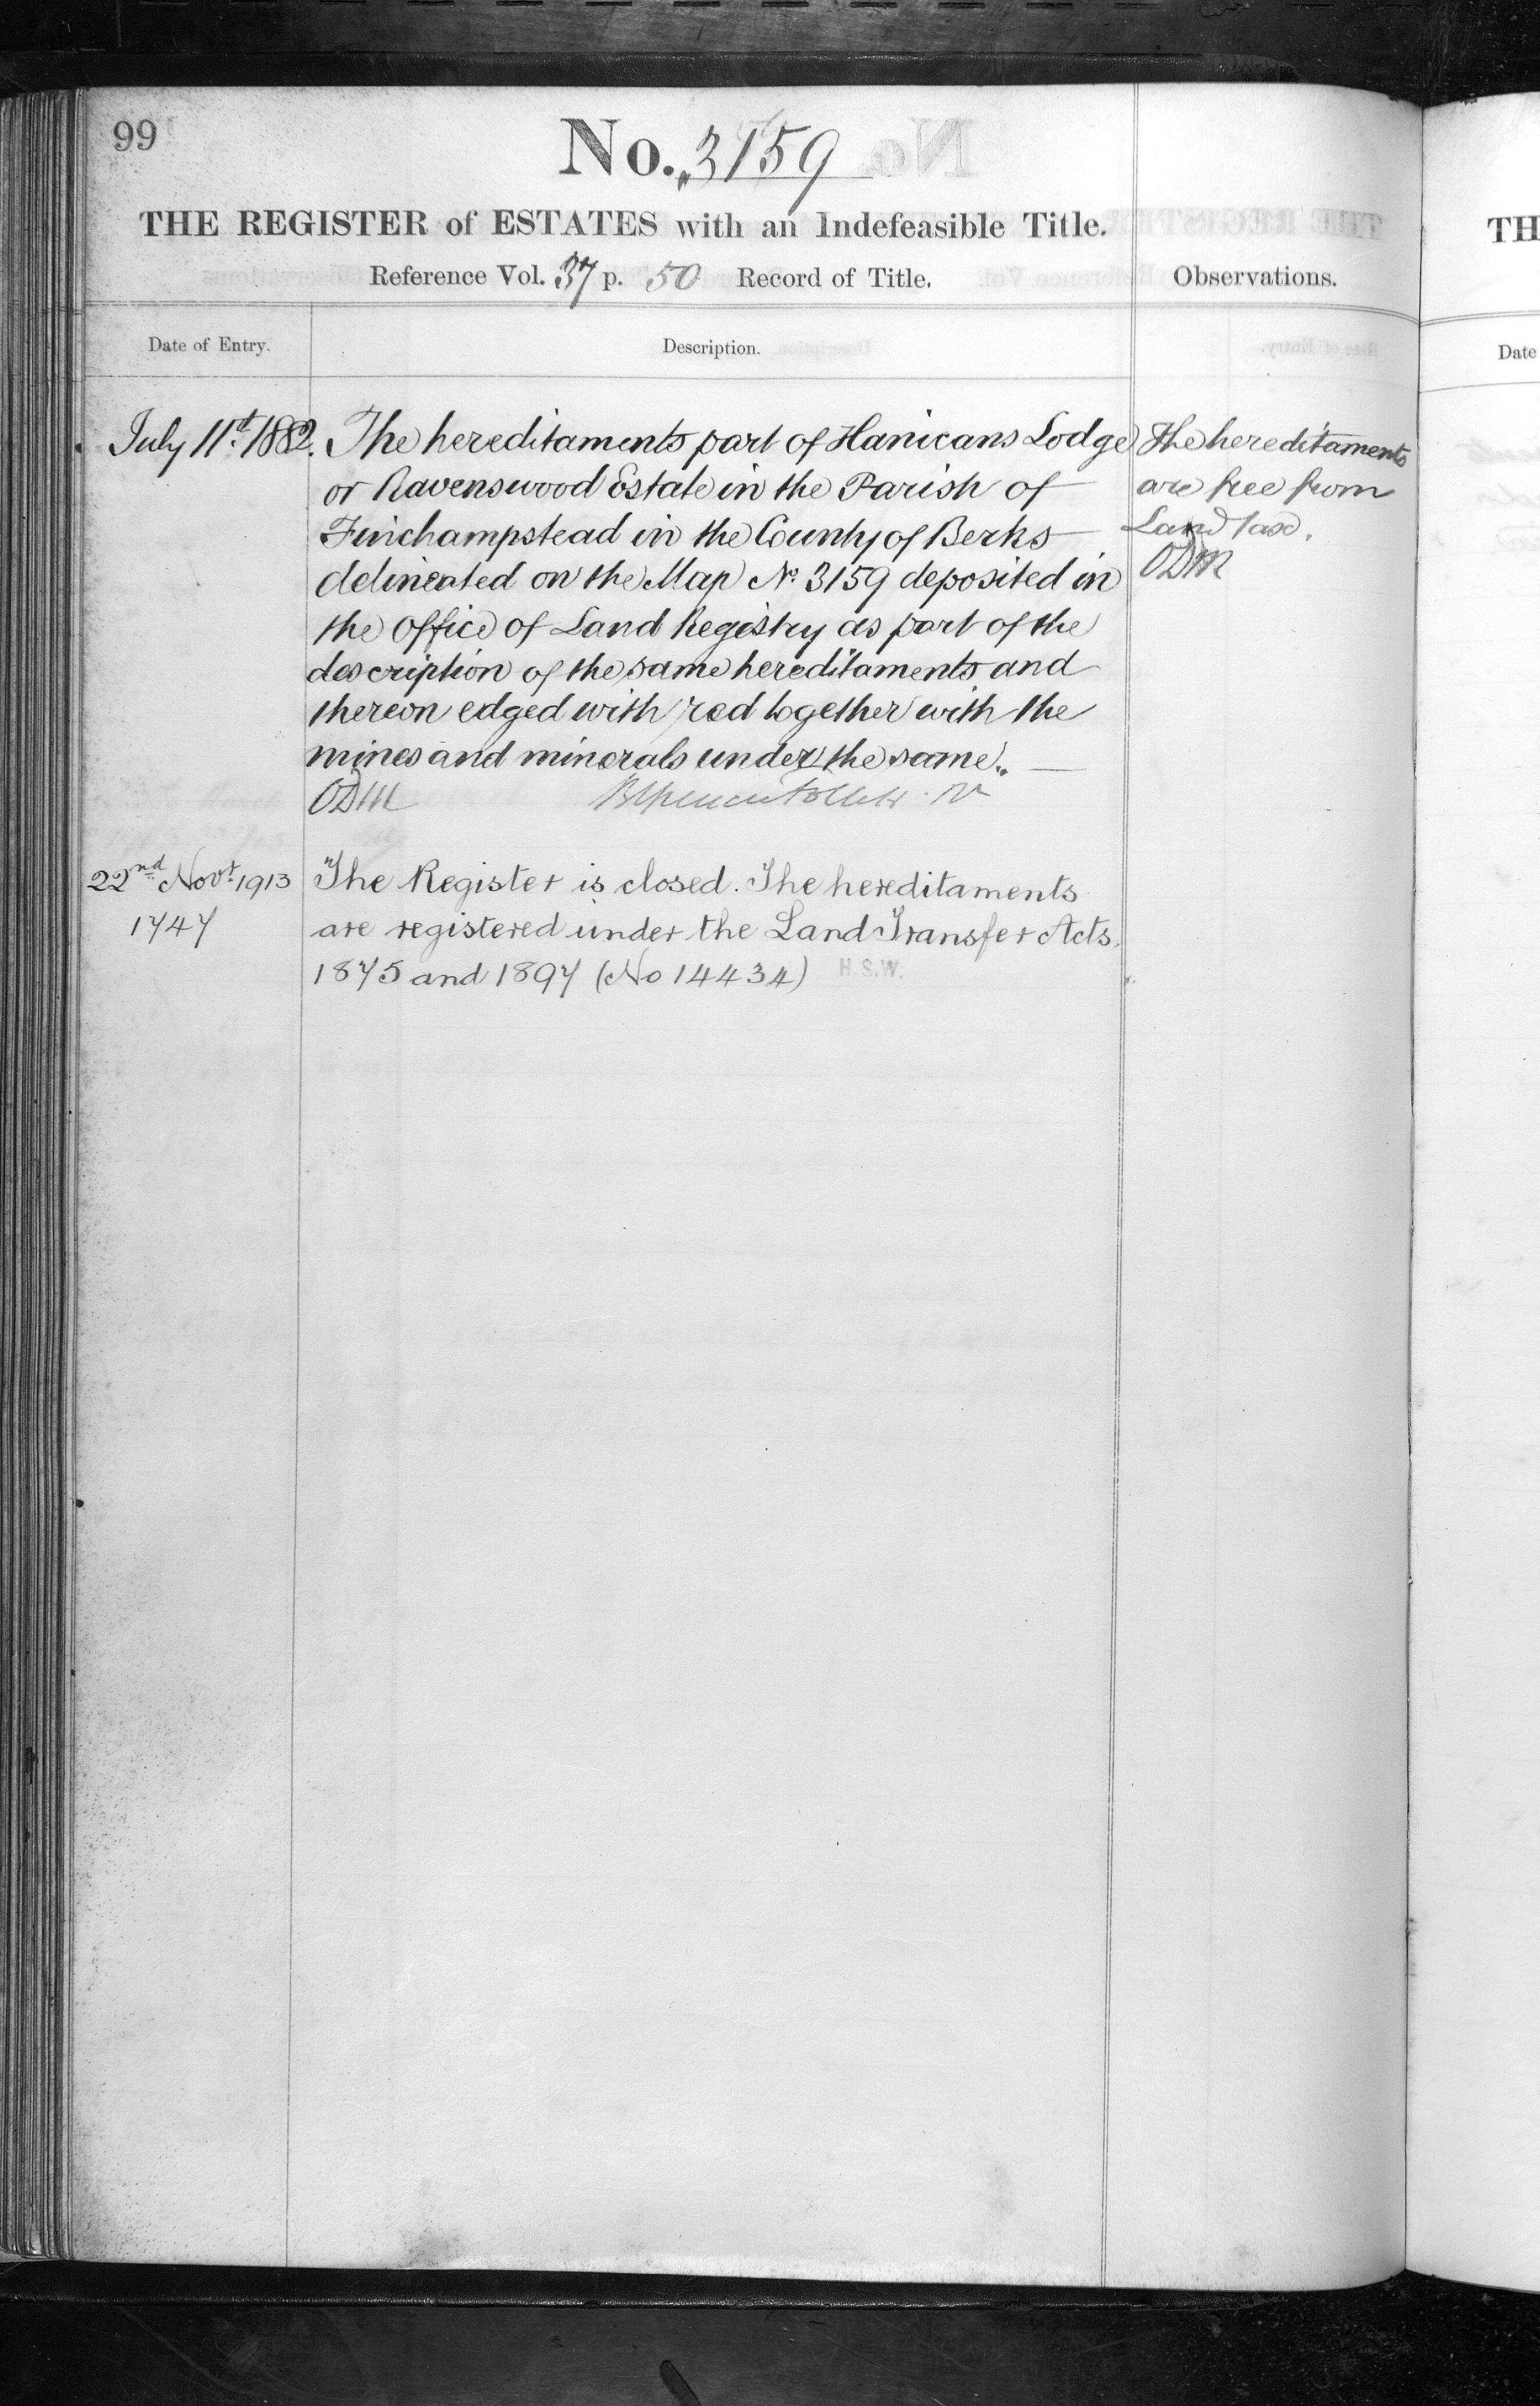 99
No. 3159
THE REGISTER of ESTATES with an Indefeasible Title.
Reference Vol. 37 p. 50 Record of Title.
Observations.
Date of Entry.
Description.
July 11th. 1882. The hereditaments part of Hanicans Lodge
or Ravenswood Estate in the Parish of
Finchampstead in the County of Berks
delineated on the Map No. 3159 deposited in
the Office of Land Registry as part of the
description of the same hereditaments and
thereon edged with red together with the
mines and minerals under the same.
ODM
The hereditaments
are free from
Land tax.
ODM
22nd Novr. 1913 The Register is closed. The hereditaments
1747 are registered under the Land Transfer Acts.
1875 and 1897 (No 14434) H.S.W.
TH
Date